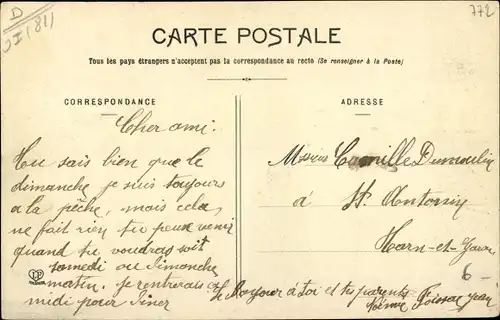 D
772
CARTE POSTALE
Tous les pays étrangers n'acceptent pas la correspondance au recto (Se renseigner à la Poste)
CORRESPONDANCE
ADRESSE
Cher ami.
Tu sais bien que le
dimanche je suis toujours
a la pêche, mais cela
ne fait rien tu peux venir
quand tu voudras soit
samedi ou dimanche
matin. je rentrerais
midi pour diner
Le Bonjour à toi et tes parents
Camille Dumoulin
à St. Antonin
Tarn-et-Garon
6-